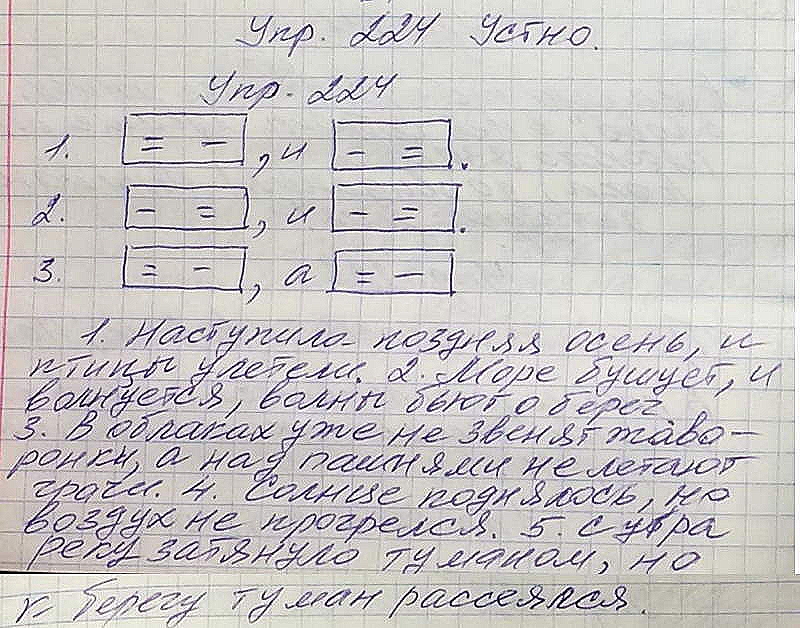 Упр. 224 Устно.
Упр. 224
1. [= −], и [− =].
2. [− =], и [− =].
3. [= −], а [= −]
1. Наступила поздняя осень, и
птицы улетели. 2. Море бушует, и
волнуется, волны бьют о берег
3. В облаках уже не звенят жаво-
ронки, а над пашнями не летают
грачи. 4. Солнце поднялось, но
воздух не прогрелся. 5. С утра
реку затянуло туманом, но
к берегу туман рассеялся.